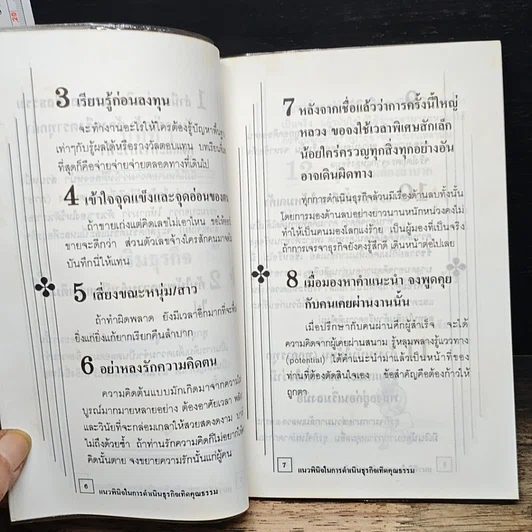 3 เรียนรู้ก่อนลงทุน
จะทำงานอะไรให้ใครต้องรู้ปัญหาพื้น
เท่าๆกับรู้ผลได้หรือรางวัลตอบแทน บทเรียน
ที่สุดก็คือจ่ายจ่ายจ่ายตลอดทางที่เดินไป
4 เข้าใจจุดแข็งและจุดอ่อนของตน
ถ้าขายเก่งแต่คิดเลขไม่เอาไหน ขอให้
ขายจะดีกว่า ส่วนตัวเลขจ้างใครสักคนมา
บันทึกนี่ให้แทน
5 เสี่ยงขณะหนุ่ม/สาว
ถ้าทำผิดพลาด ยังมีเวลาอีกมากที่จะ
ยิ่งแก่ยิ่งแก้ยากเรียกคืนลำบาก
6 อย่าหลงรักความคิดตน
ความคิดต้นแบบมักเกิดมาจากความ
บูรณ์มากมายหลายอย่าง ต้องอาศัยเวลา พลัง
และวินัยที่จะกล่อมเกลาให้สวยสดงดงาม
ไม่ถึงด้วยซ้ำ ถ้าท่านรักความคิดก็ไม่อยาก
คิดนั้นตาย จงขยายความรักนั้นแก่ผู้คน
6 แนวพินิจในการดำเนินธุรกิจเทิดคุณธรรม
7 หลังจากเชื่อแล้วว่าการครั้งนี้ใหญ่
หลวง ขอจงใช้เวลาพิเศษสักเล็ก
น้อยใคร่ครวญทุกสิ่งทุกอย่างอัน
อาจเดินผิดทาง
ทุกการดำเนินธุรกิจล้วนมีเรื่องด้านลบทั้งนั้น
โดยการมองด้านลบอย่างยาวนานหนักหน่วงคงไม่
ทำให้เป็นคนมองโลกแง่ร้าย เป็นผู้มองที่เป็นจริง
ถ้าการเจรจาธุรกิจยังคงรู้สึกดี เดินหน้าต่อไปเลย
8 เมื่อมองหาคำแนะนำ จงพูดคุย
กับคนเคยผ่านงานนั้น
เมื่อปรึกษากับคนผ่านศึกผู้สำเร็จ จะได้
ความคิดจากผู้เคยผ่านสนาม รู้หลุมพลางรู้แววทาง
(potential) ได้คำแนะนำมาแล้วเป็นหน้าที่ของ
ท่านที่ต้องตัดสินใจเอง ข้อสำคัญคือต้องก้าวให้
ถูกตา
7 แนวพินิจในการดำเนินธุรกิจเทิดคุณธรรม